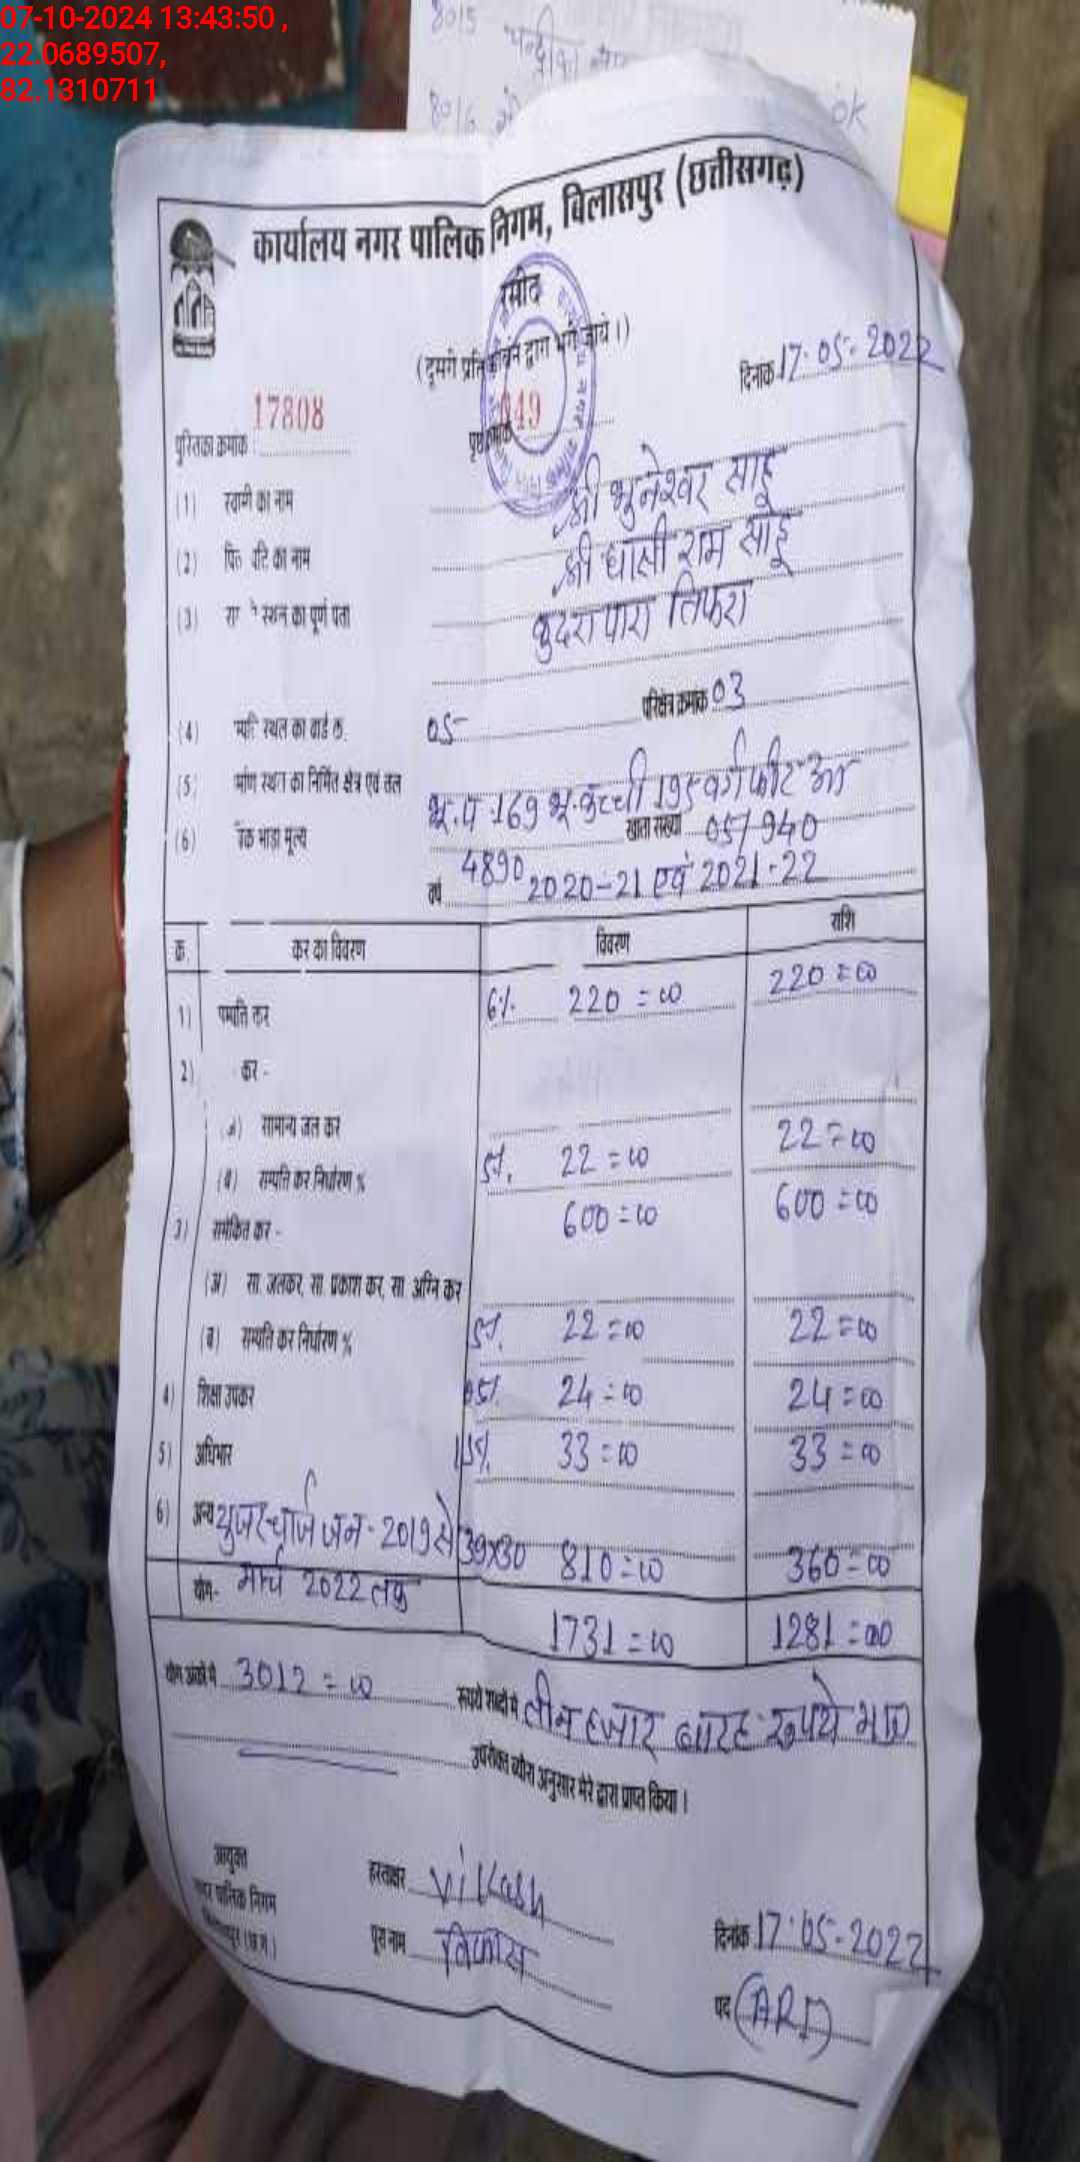 07-10-2024 13:43:50 ,
22.0689507,
82.1310711
8015
8016
ok
कार्यालय नगर पालिक निगम, बिलासपुर (छत्तीसगढ़)
रसीद
(दूसरी प्रति द्वारा भरी जाये।)
दिनांक 17.05.2022
पुस्तिका क्रमांक 17808 पृष्ठ क्रमांक 49
(1) स्वामी का नाम श्री भुनेश्वर साहू
(2) का नाम श्री घासी राम साहू
(3) स्थल का पूर्ण पता कुदरापारा तिफरा
(4) स्थल का वार्ड क्र. 05 परिक्षेत्र क्रमांक 03
(5) स्थल का निर्मित क्षेत्र एवं तल भू.प 169 भू.कच्ची 195 वर्ग फीट
(6) भाड़ा मूल्य 4890 खाता संख्या 05/940
वर्ष 2020-21 एवं 2021-22
क्र. कर का विवरण विवरण राशि
1) सम्पत्ति कर 6% 220=00 220=00
2) कर -
सामान्य जल कर
(ब) सम्पत्ति कर निर्धारण % 5%. 22=00 22=00
3) समेकित कर - 600=00 600=00
(अ) सा. जलकर, सा. प्रकाश कर, सा. अग्नि कर
(ब) सम्पत्ति कर निर्धारण % 5%. 22=00 22=00
4) शिक्षा उपकर 24=00 24=00
5) अधिभार 15% 33=00 33=00
6) अन्य युजर चार्ज जन-2019 से 39x30 810=00 360=00
योग- मार्च 2022 तक 1731=00 1281=00
योग अंकों में 3012=00 रूपये शब्दों में तीन हजार बारह रूपये मात्र
उपरोक्त ब्यौरा अनुसार मेरे द्वारा प्राप्त किया।
आयुक्त
नगर पालिक निगम
हस्ताक्षर Vikash
पूरा नाम विकास
दिनांक 17.05.2022
पद (ARI)